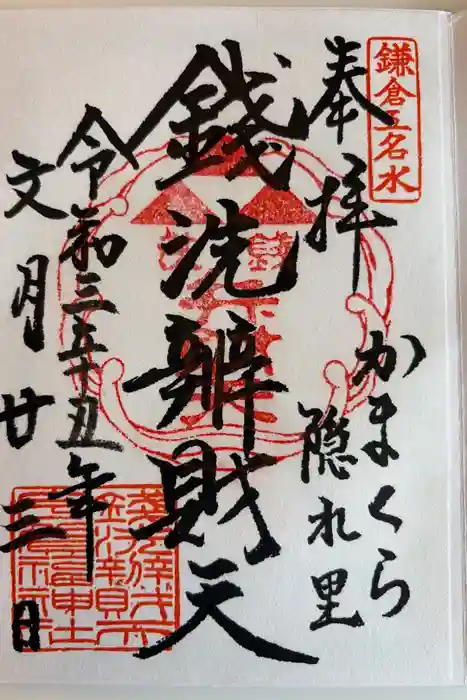 鎌倉五名水
奉拝
かまくら
隠れ里
銭洗辨財天
令和三辛丑年
文月廿三日